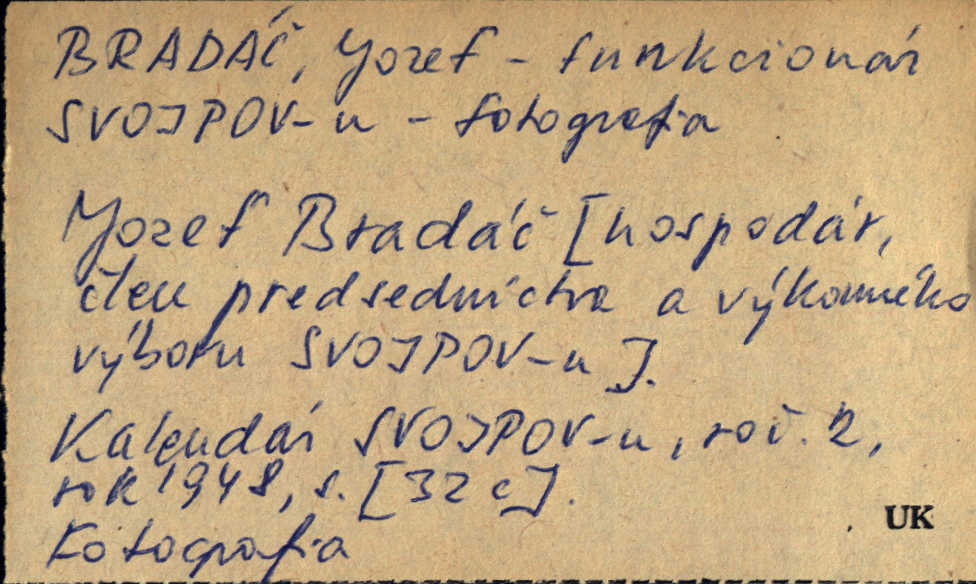 BRADÁČ, Jozef - funkcionár
SVOJPOV-u - fotografia
Jozef Bradáč [hospodár,
člen predsedníctva a výkonného
výboru SVOJPOV-u].
Kalendár SVOJPOV-u, roč. 2,
rok 1948, s. [32 c].
Fotografia
UK